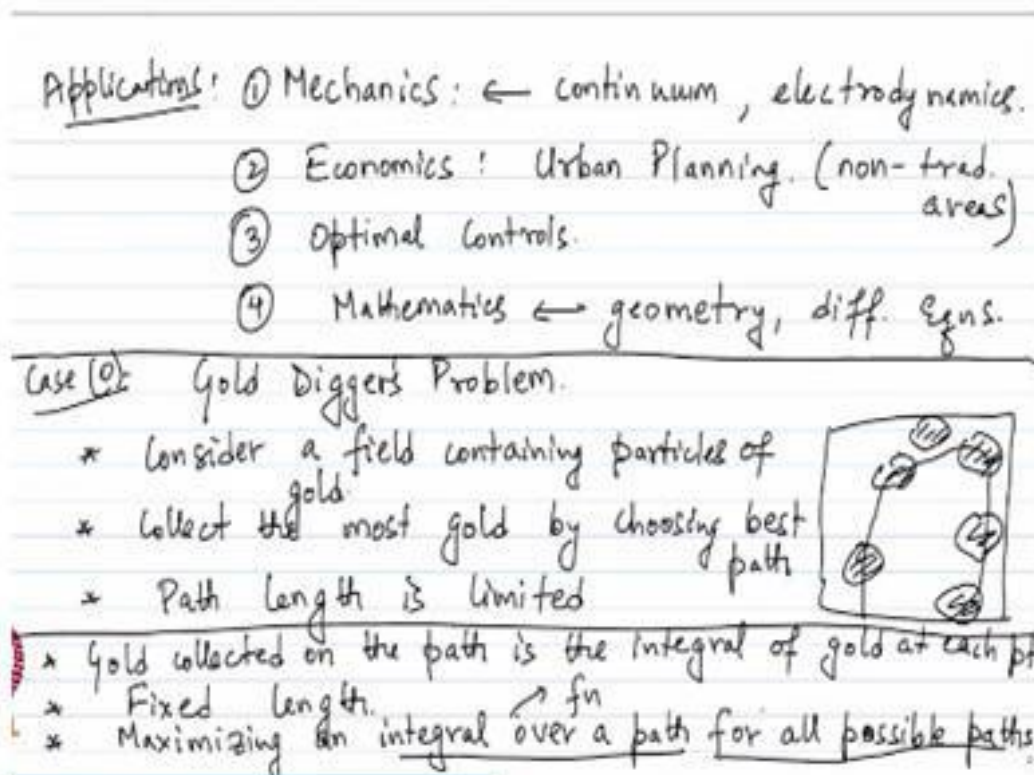 Applications: ① Mechanics: ← continuum, electrodynamics.
② Economics: Urban Planning. (non-trad.
areas)
③ Optimal Controls.
④ Mathematics ← geometry, diff. Eqns.
Case (0): Gold Diggers Problem.
* Consider a field containing particles of
gold.
* Collect the most gold by choosing best
path
* Path length is limited
* Gold collected on the path is the integral of gold at each pt
* Fixed length. ↗ fn
* Maximizing an integral over a path for all possible paths